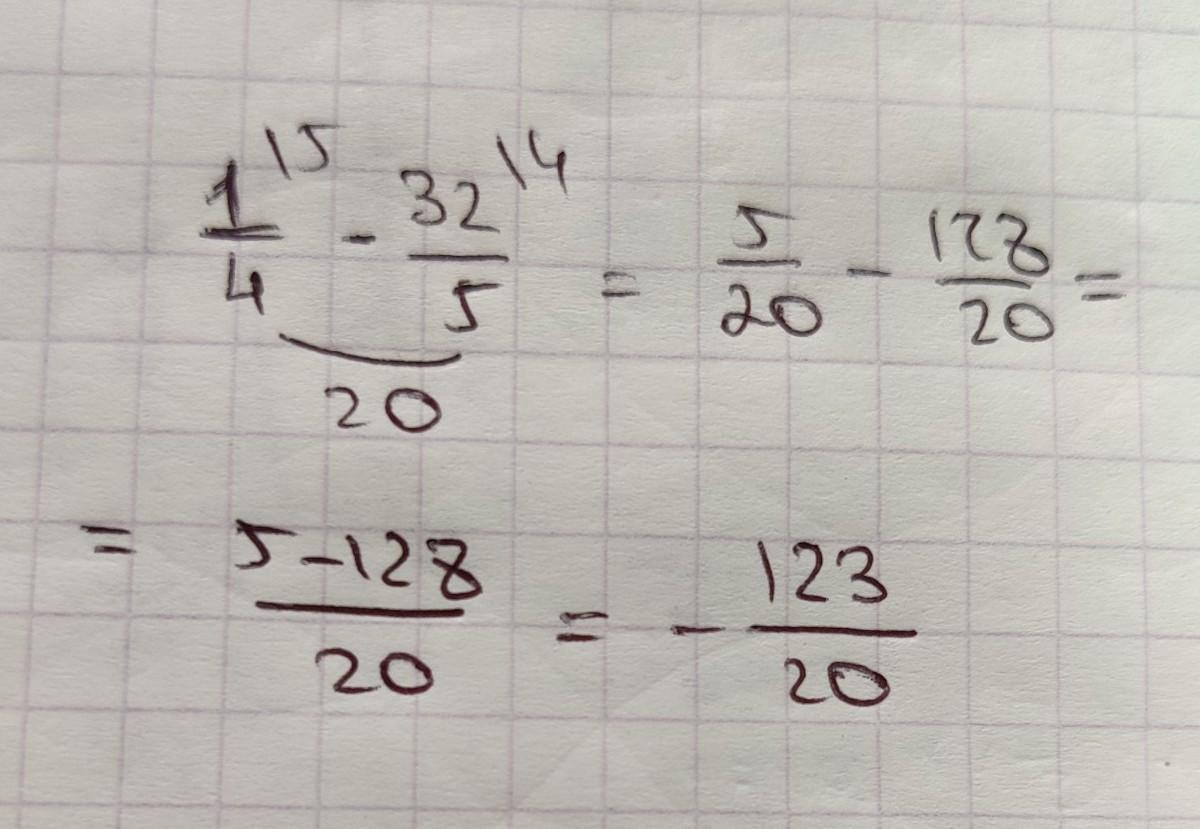 1/4 \5 - 32/5 \4 = 5/20 - 128/20 =
20
= 5-128/20 = - 123/20